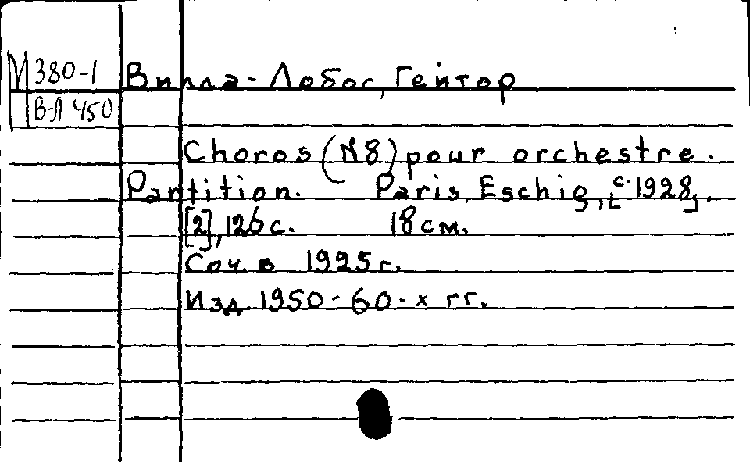 М 380-1
В-Л 450
Вилла-Лобос, Гейтор
Choros (N8) pour orchestre.
Partition. Paris, Eschig, [c. 1928].
[2], 126 с. 18 см.
Соч. в 1925 г.
Изд. 1950-60-х гг.